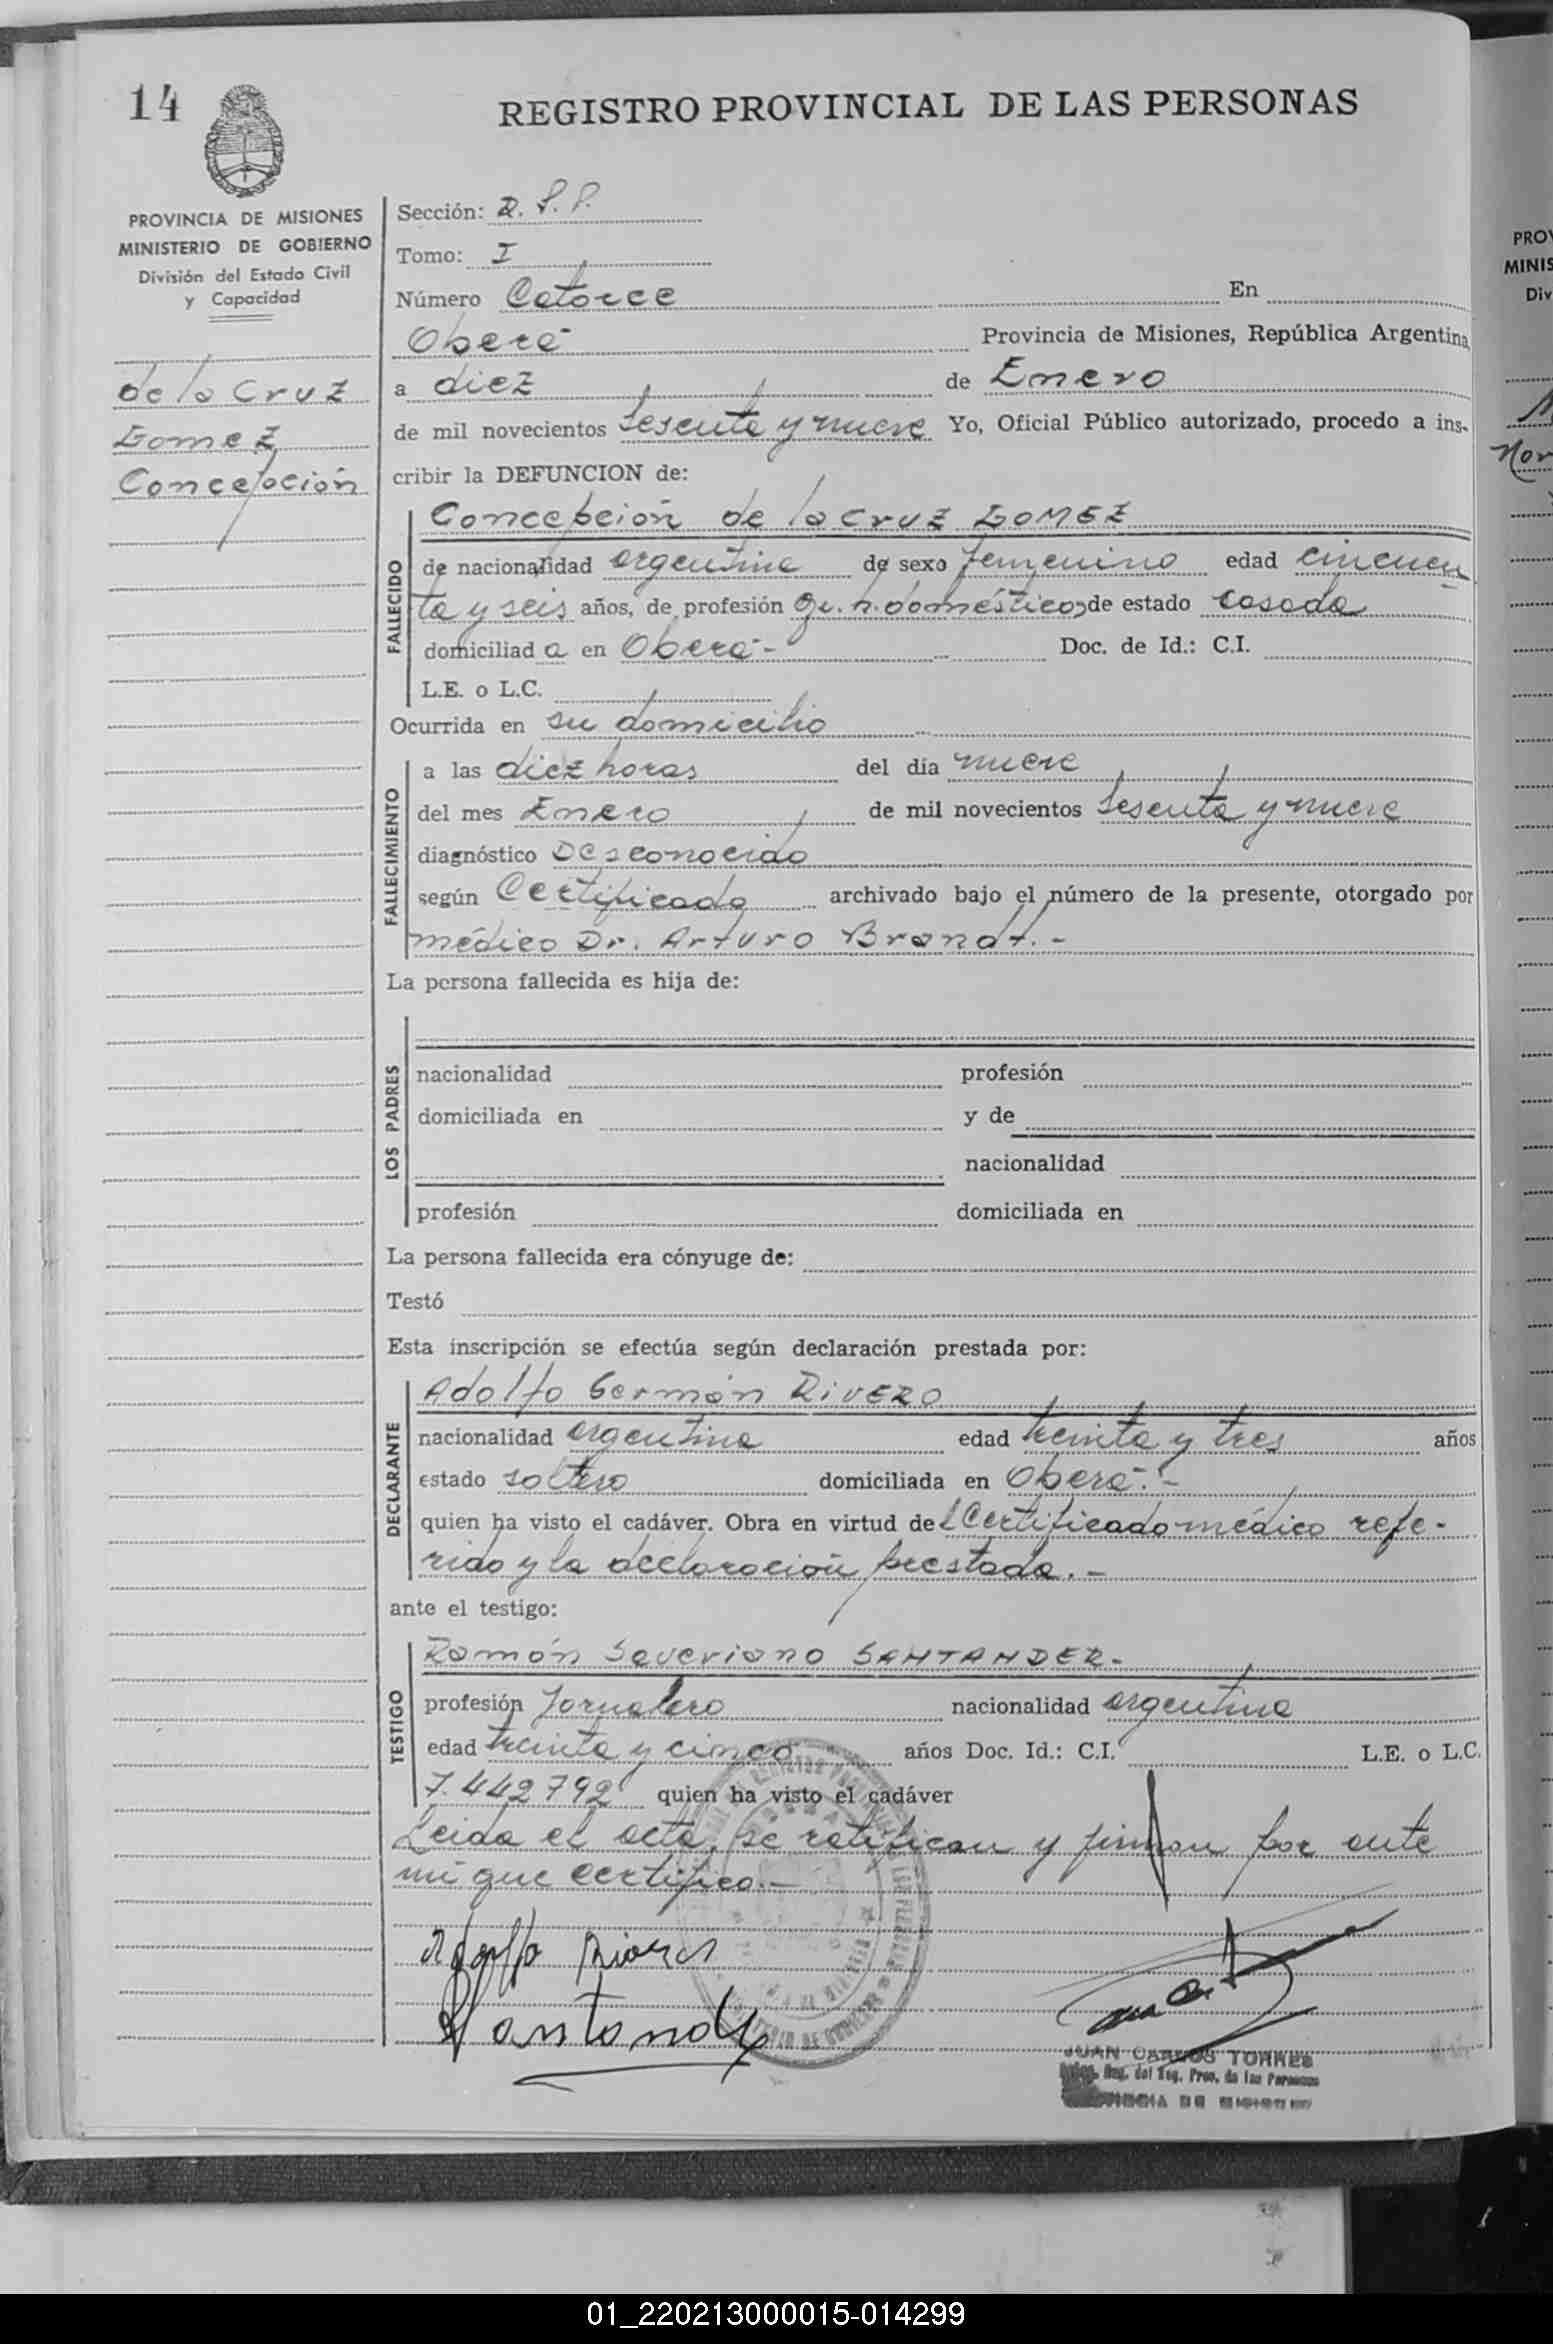 14
REGISTRO PROVINCIAL DE LAS PERSONAS
PROVINCIA DE MISIONES
MINISTERIO DE GOBIERNO
División del Estado Civil
y Capacidad
de la Cruz
Gomez
Concepción
Sección: R. P. P.
Tomo: I
Número Catorce En
Oberá Provincia de Misiones, República Argentina
a diez de Enero
de mil novecientos sesenta y nueve Yo, Oficial Público autorizado, procedo a ins-
cribir la DEFUNCION de:
FALLECIDO
Concepción de la Cruz GOMEZ
de nacionalidad argentina de sexo femenino edad cincuen
ta y seis años, de profesión q. h. domésticos de estado casada
domiciliad a en Oberá.- Doc. de Id.: C.I.
L.E. o L.C.
Ocurrida en su domicilio
FALLECIMIENTO
a las diez horas del día nueve
del mes Enero de mil novecientos sesenta y nueve
diagnóstico Desconocido
según Certificado archivado bajo el número de la presente, otorgado por
médico Dr. Arturo Brandt.-
La persona fallecida es hija de:
LOS PADRES
nacionalidad profesión
domiciliada en y de
nacionalidad
profesión domiciliada en
La persona fallecida era cónyuge de:
Testó
Esta inscripción se efectúa según declaración prestada por:
DECLARANTE
Adolfo Germán RIVERO
nacionalidad argentina edad treinta y tres años
estado soltero domiciliada en Oberá.-
quien ha visto el cadáver. Obra en virtud del Certificado médico refe-
rido y la declaración prestada.-
ante el testigo:
TESTIGO
Ramón Severiano SANTANDER.-
profesión Jornalero nacionalidad argentina
edad treinta y cinco años Doc. Id.: C.I. L.E. o L.C.
7.442792 quien ha visto el cadáver
Leída el acta, se ratifican y firman por ante
mí que certifico.-
Adolfo Rivero
Santander
JUAN CARLOS TORRES
Reg. del Reg. Prov. de las Personas
PROVINCIA DE MISIONES
PROV
MINIS
Div
Nor
01_220213000015-014299